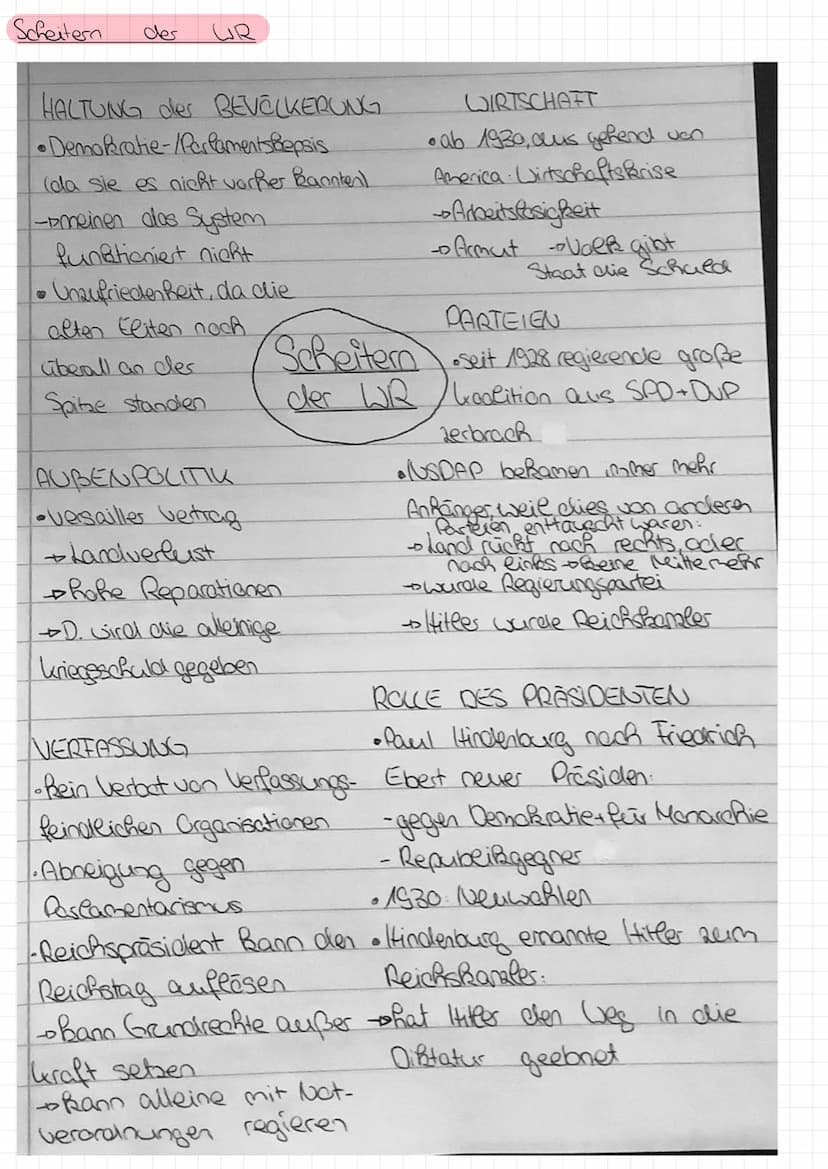 Scheitern der WR
HALTUNG der BEVÖLKERUNG
• Demokratie-/Parlamentskepsis
(da sie es nicht vorher kannten)
→ meinen das System
funktioniert nicht
• Unzufriedenheit, da die
alten Eliten noch
überall an der
Spitze standen
WIRTSCHAFT
• ab 1930, aus gehend von
America: Wirtschaftskrise
→ Arbeitslosigkeit
→ Armut → Volk gibt
Staat die Schuld
Scheitern
der WR
PARTEIEN
• seit 1928 regierende große
Koalition aus SPD + DVP
zerbrach
• NSDAP bekamen immer mehr
Anhänger, weil dies von anderen
Parteien enttäuscht waren:
→ Land rückt nach rechts, oder
nach links → keine Mitte mehr
→ wurde Regierungspartei
→ Hitler wurde Reichskanzler
AUßENPOLITIK
• Versailler Vertrag
→ Landverlust
→ hohe Reparationen
→ D. wird die alleinige
Kriegsschuld gegeben
VERFASSUNG
• kein Verbot von Verfassungs-
feindlichen Organisationen
• Abneigung gegen
Parlamentarismus
• Reichspräsident kann den
Reichstag auflösen
→ kann Grundrechte außer
Kraft setzen
→ kann alleine mit Not-
verordnungen regieren
ROLLE DES PRÄSIDENTEN
• Paul Hindenburg nach Friedrich
Ebert neuer Präsiden:
- gegen Demokratie + für Monarchie
- Republikgegner
• 1930: Neuwahlen
• Hindenburg ernannte Hitler zum
Reichskanzler:
→ hat Hitler den Weg in die
Diktatur geebnet